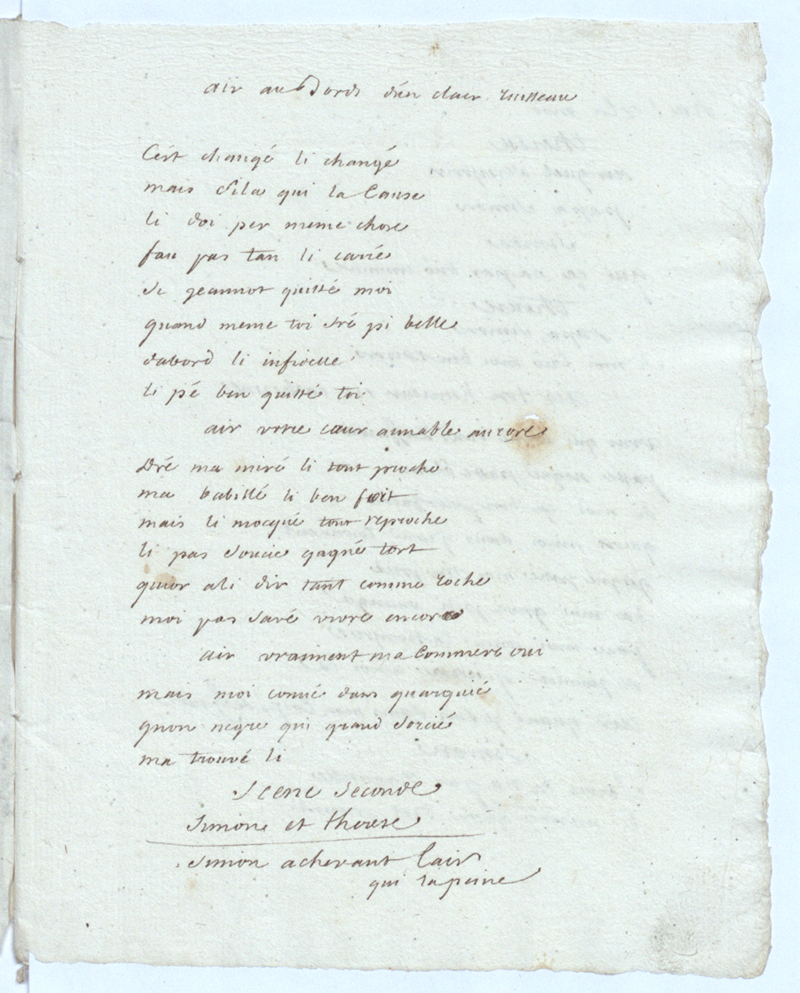 air au Bords d'un clair ruisseau
C'est changé li changé
mais c'ila qui la Cause
li doi per meme chose
fau pas tan li carié
si jeannot quitté moi
quand meme toi sré pi belle
dabord li infidelle
li pé ben quitté toi
air votre cœur aimable aurore
Dré ma miré li tout proche
ma babillé li ben fort
mais li mocqué tout reproche
li pas soucié gagné tort
quior a li dir tant comme roche
moi pas savé vivre encore
air vraiment ma Commere oui
mais moi connié dans quarquié
gnon negre qui grand sorcié
ma trouvé li
Scene Seconde
Simon et therese
Simon achevant l'air
qui la peine